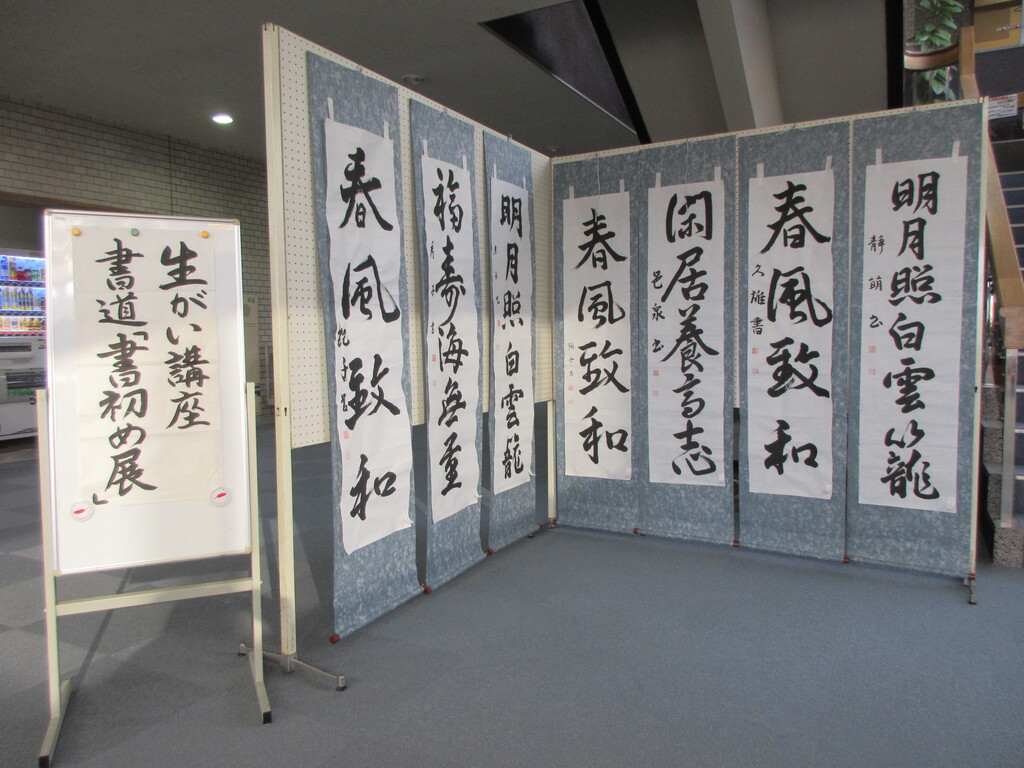 生がい講座
書道「書初め展」
春風致和
福寿海無量
明月照白雲籠
春風致和
閑居養高志
春風致和
久雄書
明月照白雲籠
静萌书